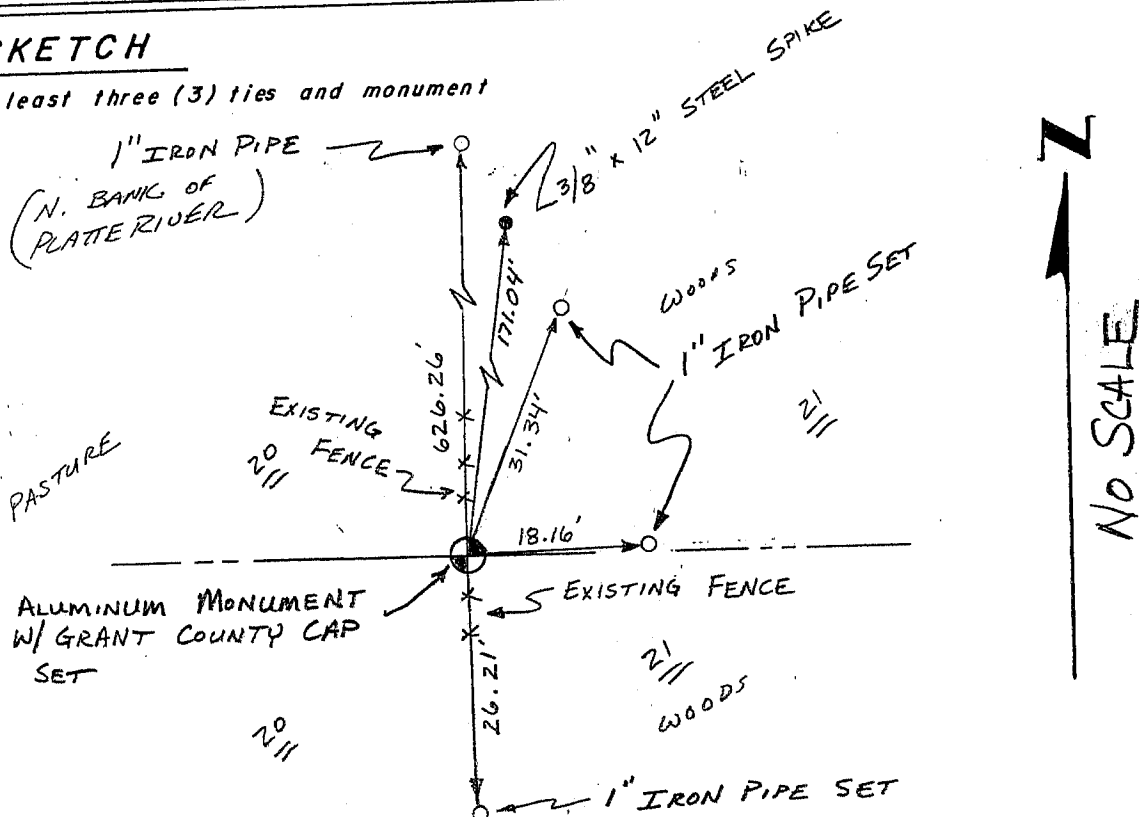 SKETCH
least three (3) ties and monument
1" IRON PIPE
(N. BANK OF
PLATTE RIVER)
3/8" x 12" STEEL SPIKE
N
WOODS
1" IRON PIPE SET
171.04'
626.26'
31.34'
EXISTING
FENCE
20
21
PASTURE
NO SCALE
18.16'
ALUMINUM MONUMENT
W/ GRANT COUNTY CAP
SET
EXISTING FENCE
26.21'
21
WOODS
20
1" IRON PIPE SET